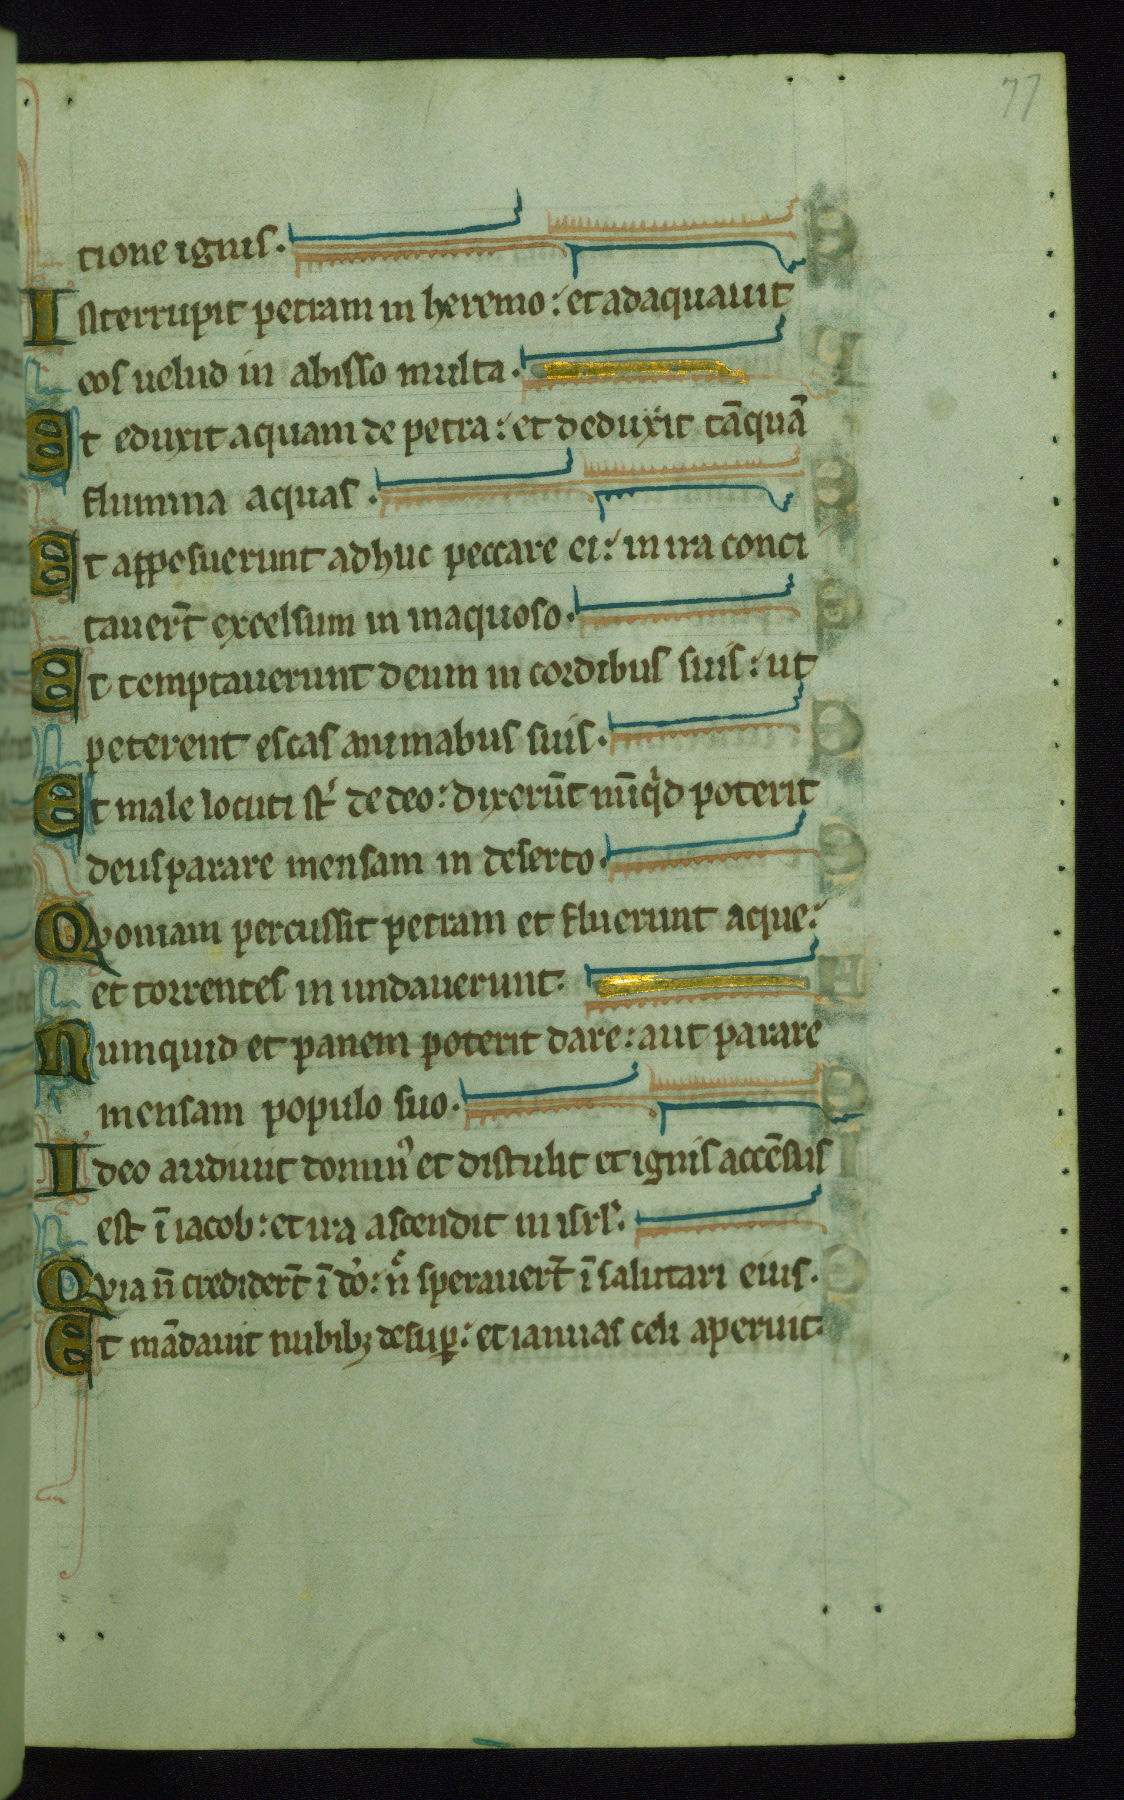 77
tione ignis.
Isterrupit petram in heremo: et adaquauit
eos uelud in abisso multa.
Et eduxit aquam de petra: et deduxit tāquā
flumina aquas.
Et apposuerunt adhuc peccare ei: in ira conci
tauerт̄ excelsum in inaquoso.
Et temptauerunt deum in cordibus suis: ut
peterent escas animabus suis.
Et male locuti st̄ de deo: dixerūt nūqͥd poterit
deus parare mensam in deserto.
Quoniam percussit petram et fluerunt aque:
et torrentes in undauerunt.
Numquid et panem poterit dare: aut parare
mensam populo suo.
Ideo audiuit domin᾽ et distulit et ignis accēsus
est ī iacob: et ira ascendit in isrl̄.
Quia n̄ credidert̄ ī dō: n̄ sperauert̄ ī salutari eius.
Et mādauit nubibꝫ desuꝑ: et ianuas celi aperuit.